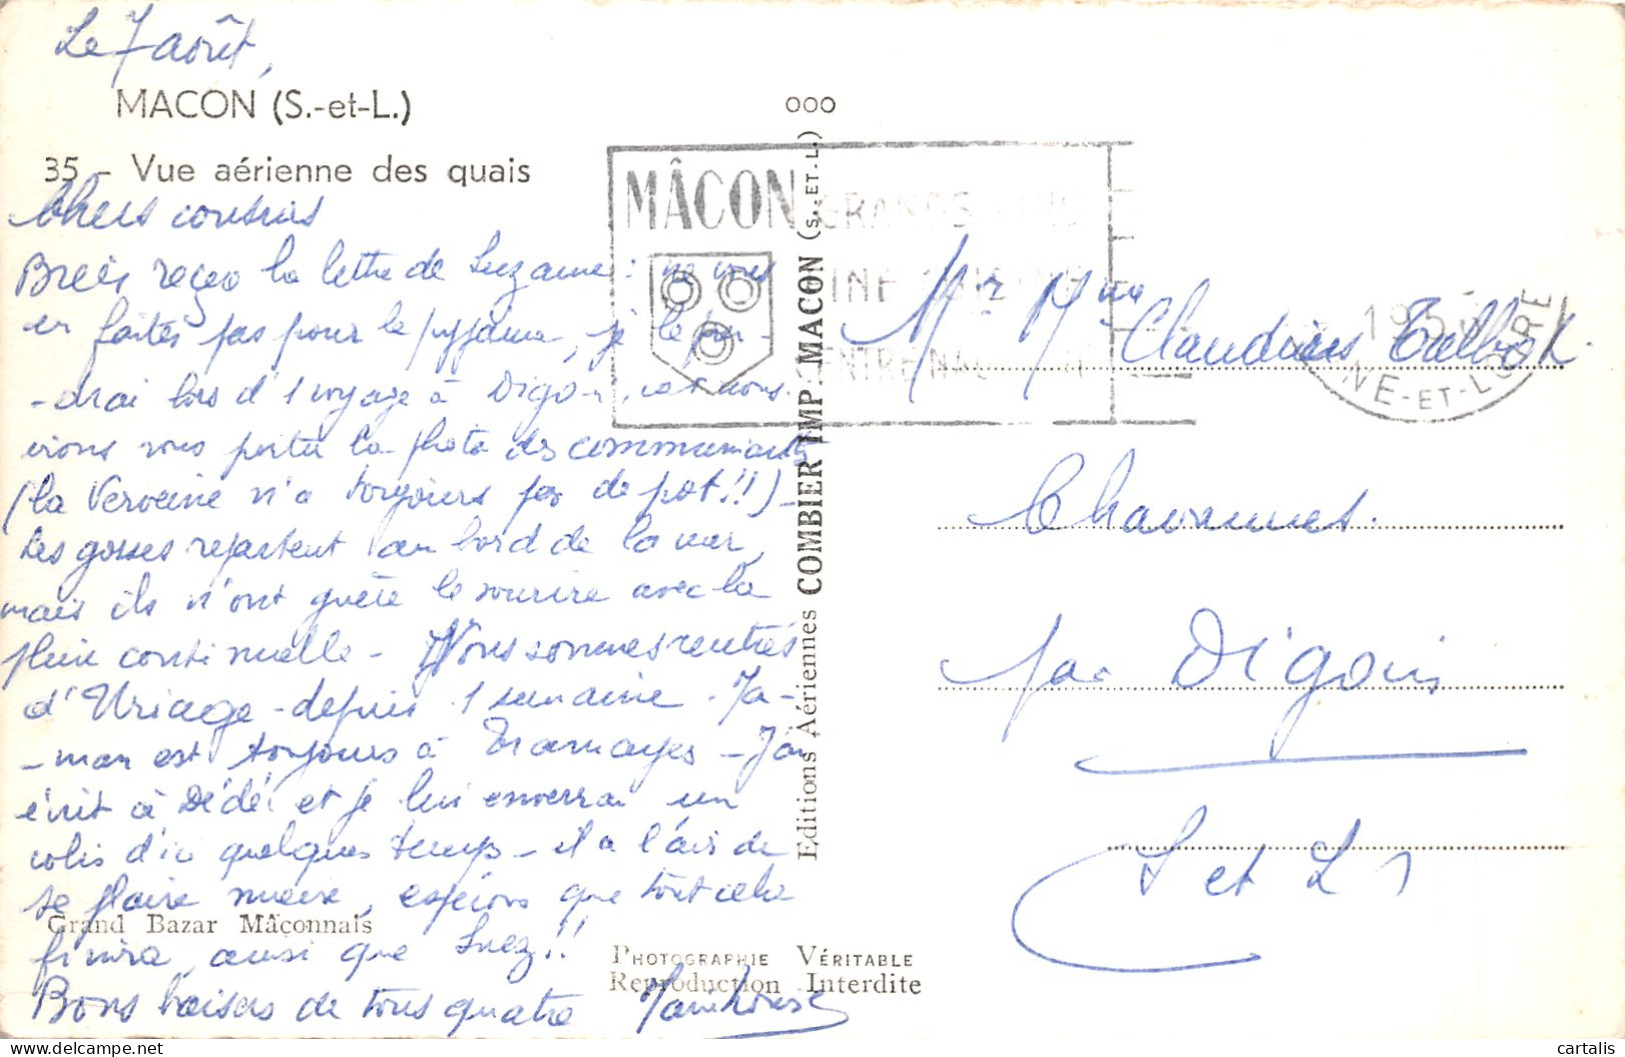 Le 7 août,
MACON (S.-et-L.)
35 - Vue aérienne des quais
Chers cousins
Bien reçu la lettre de Suzanne : ne vous
en faites pas pour le pyjama, je le pren-
-drai lors d'1 voyage à Digoin, et nous
irons vous porter la photo des communiants
(la Verveine n'a toujours pas de pot!!) -
Les gosses repartent au bord de la mer,
mais ils n'ont guète le sourire avec la
pluie continuelle - Nous sommes rentrés
d'Uriage - depuis 1 semaine - Ma-
-man est toujours à Tramayes - J'ai
écrit à Dédé et je lui enverrai un
colis d'ici quelques temps - il a l'air de
se plaire mieux, espérons que tout cela
Grand Bazar Mâconnais
finira, ainsi que Suez!!
Bons baisers de tous quatre
PHOTOGRAPHIE VÉRITABLE
Reproduction Interdite
Editions Aériennes COMBIER IMP. MACON (S.-ET-L.)
MÂCON
GRANDS VINS
CENTRE
195
ET-LOIRE
Mr Mme Claudius
Chavannes.
par Digoin
S et L
cartalis